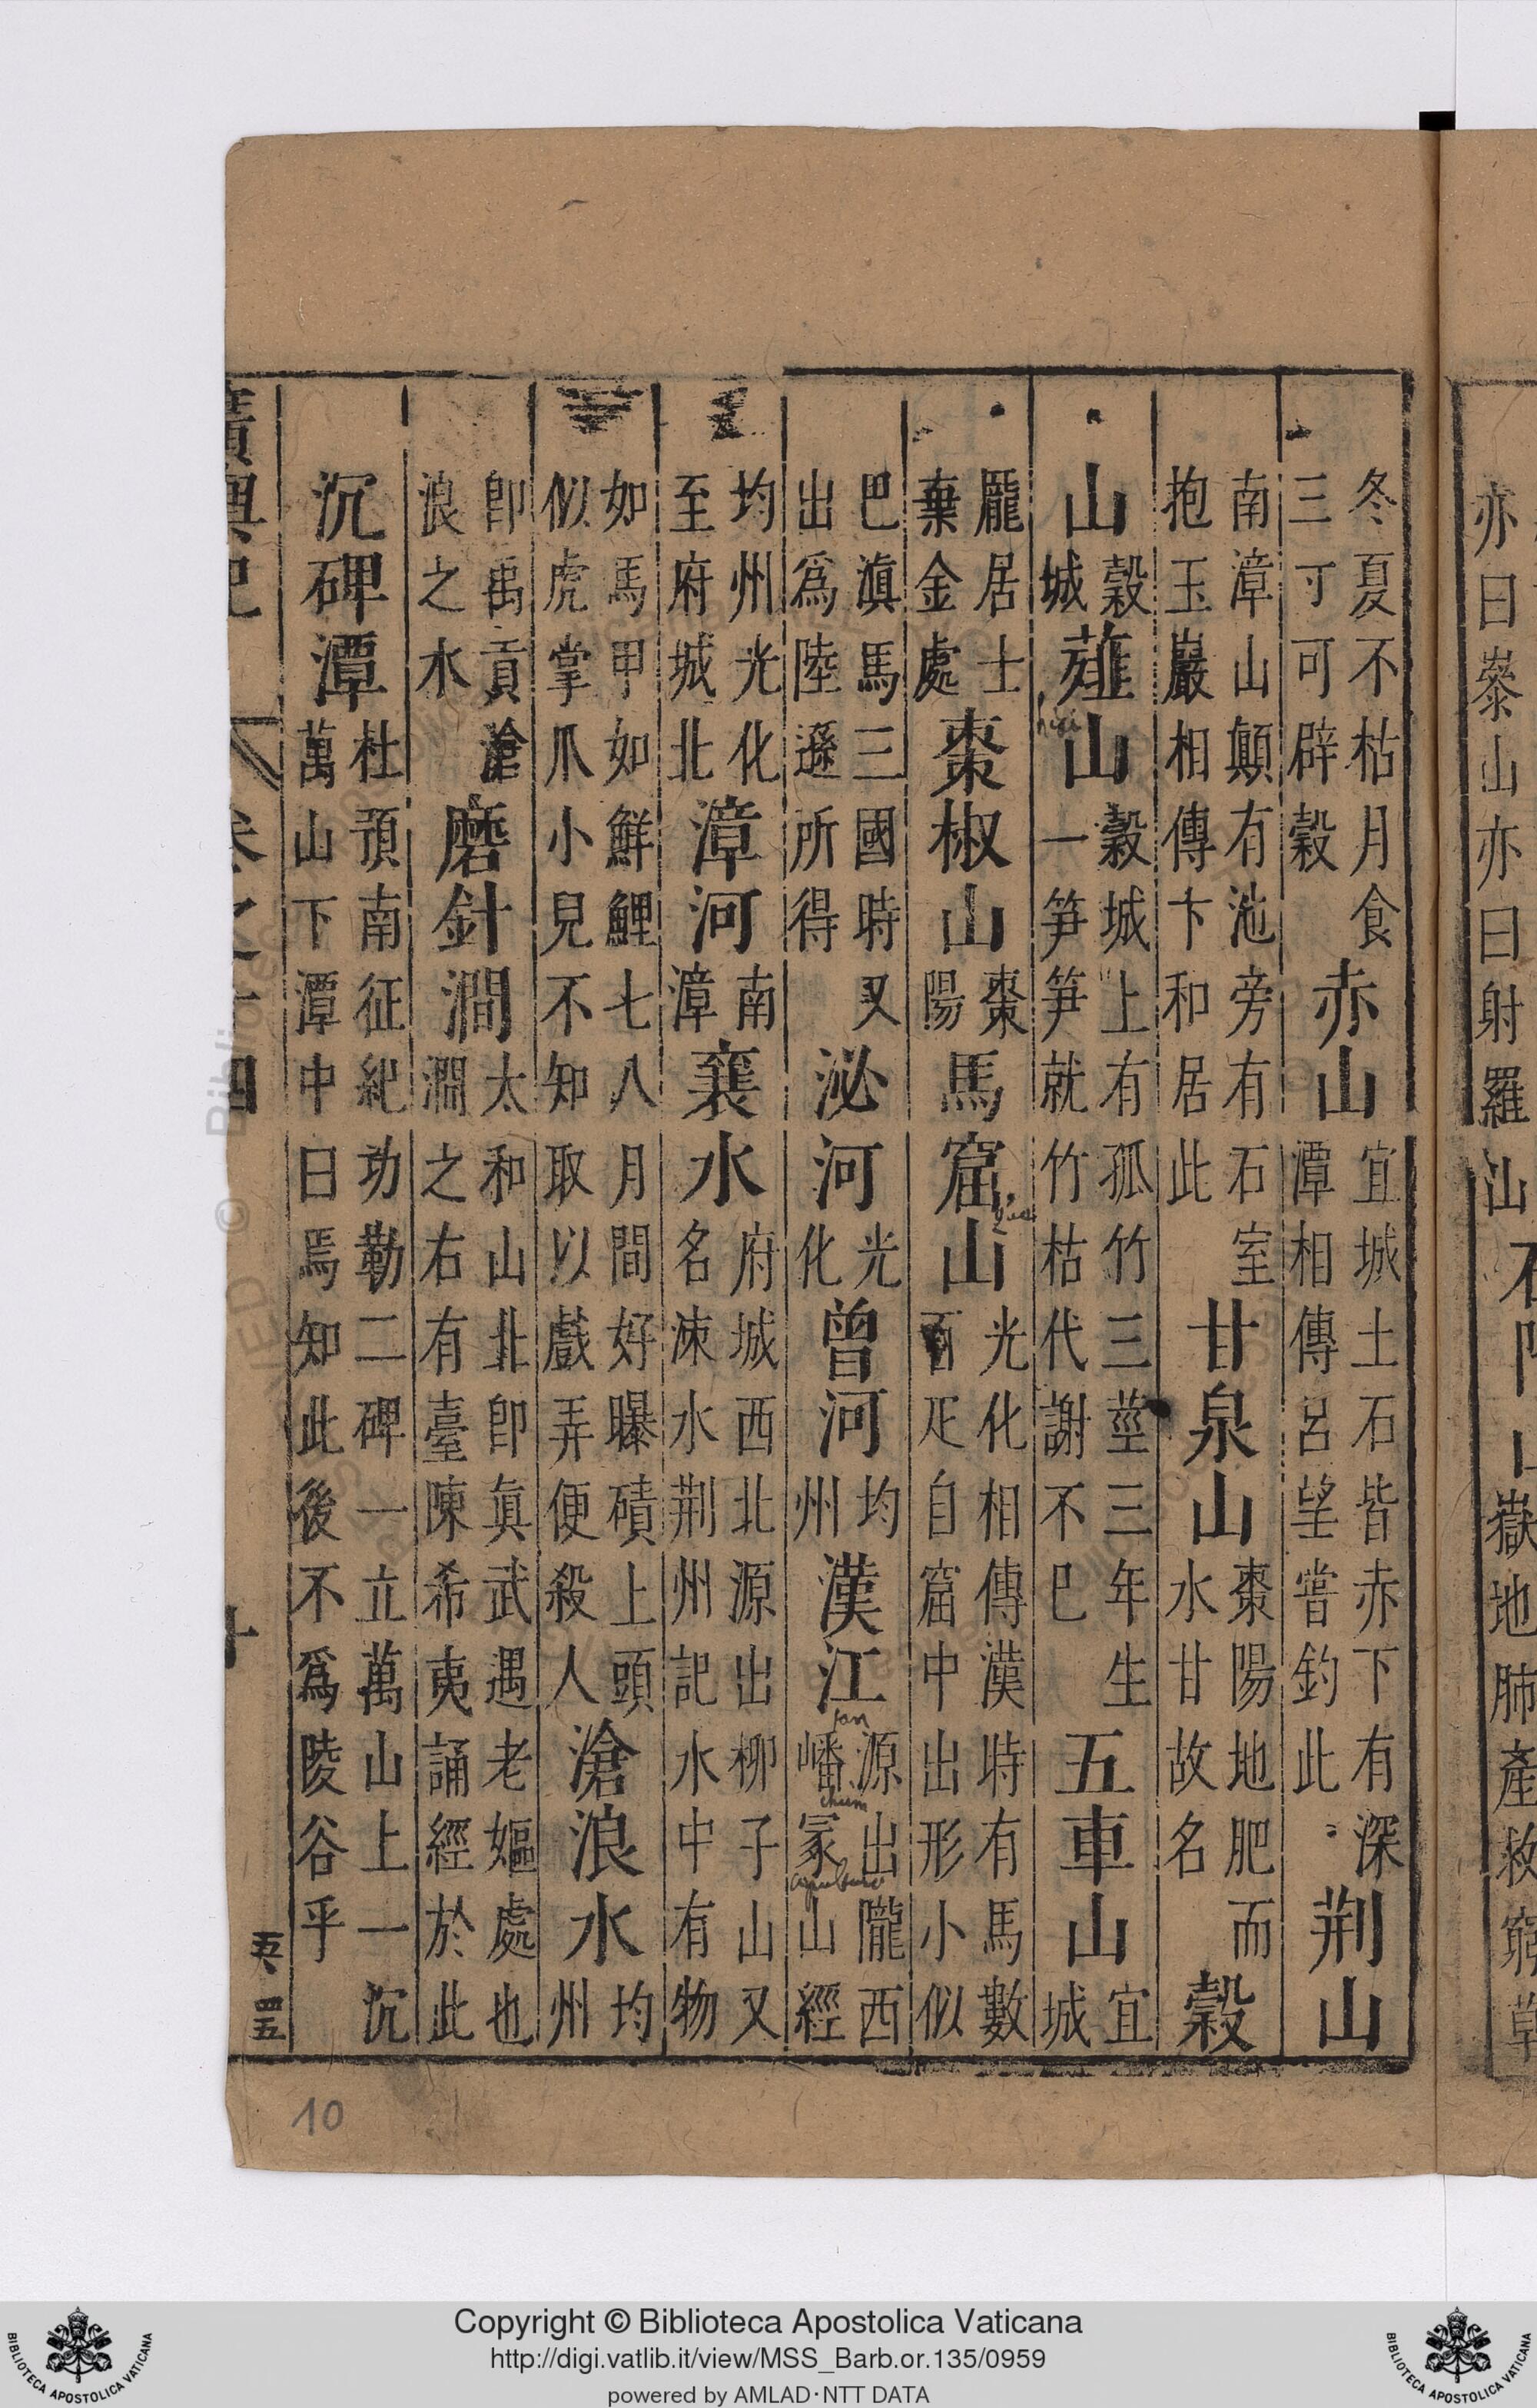 亦曰
山亦曰射羅山
冬夏不枯月食
三寸可辟穀
赤山
宜城土石皆赤下有深
潭相傳呂望嘗釣此
荆山
南漳山顛有池旁有石室
抱玉巖相傳卞和居此
甘泉山
棗陽地肥而
水甘故名
穀
山
穀
城
薤山
hiai
穀城上有孤竹三莖三年生
一笋笋就竹枯代謝不巳
五車山
宜
城
龐居士
棄金處
棗椒山
棗
陽
馬窟山
光化相傳漢時有馬數
百疋自窟中出形小似
巴滇馬三國時又
出爲陸遜所得
泌河
光
化
曾河
均
州
漢江
源出隴西
嶓冢山經
chum
均州光化
至府城北
漳河
南
漳
襄水
府城西北源出柳子山又
名涑水荆州記水中有物
如馬甲如鮮鯉七八月間好曝磧上頭
似虎掌爪小兒不知取以戲弄便殺人
滄浪水
均
州
卽禹貢滄
浪之水
磨針澗
太和山北卽眞武遇老嫗處也
澗之右有臺陳希夷誦經於此
沉碑潭
杜預南征紀功勒二碑一立萬山上一沉
萬山下潭中曰焉知此後不爲陵谷乎
廣輿記
卷之十四
十
五、四五
10
Copyright © Biblioteca Apostolica Vaticana
http://digi.vatlib.it/view/MSS_Barb.or.135/0959
powered by AMLAD・NTT DATA
BIBLIOTECA APOSTOLICA VATICANA
BIBLIOTECA APOSTOLICA VATICANA